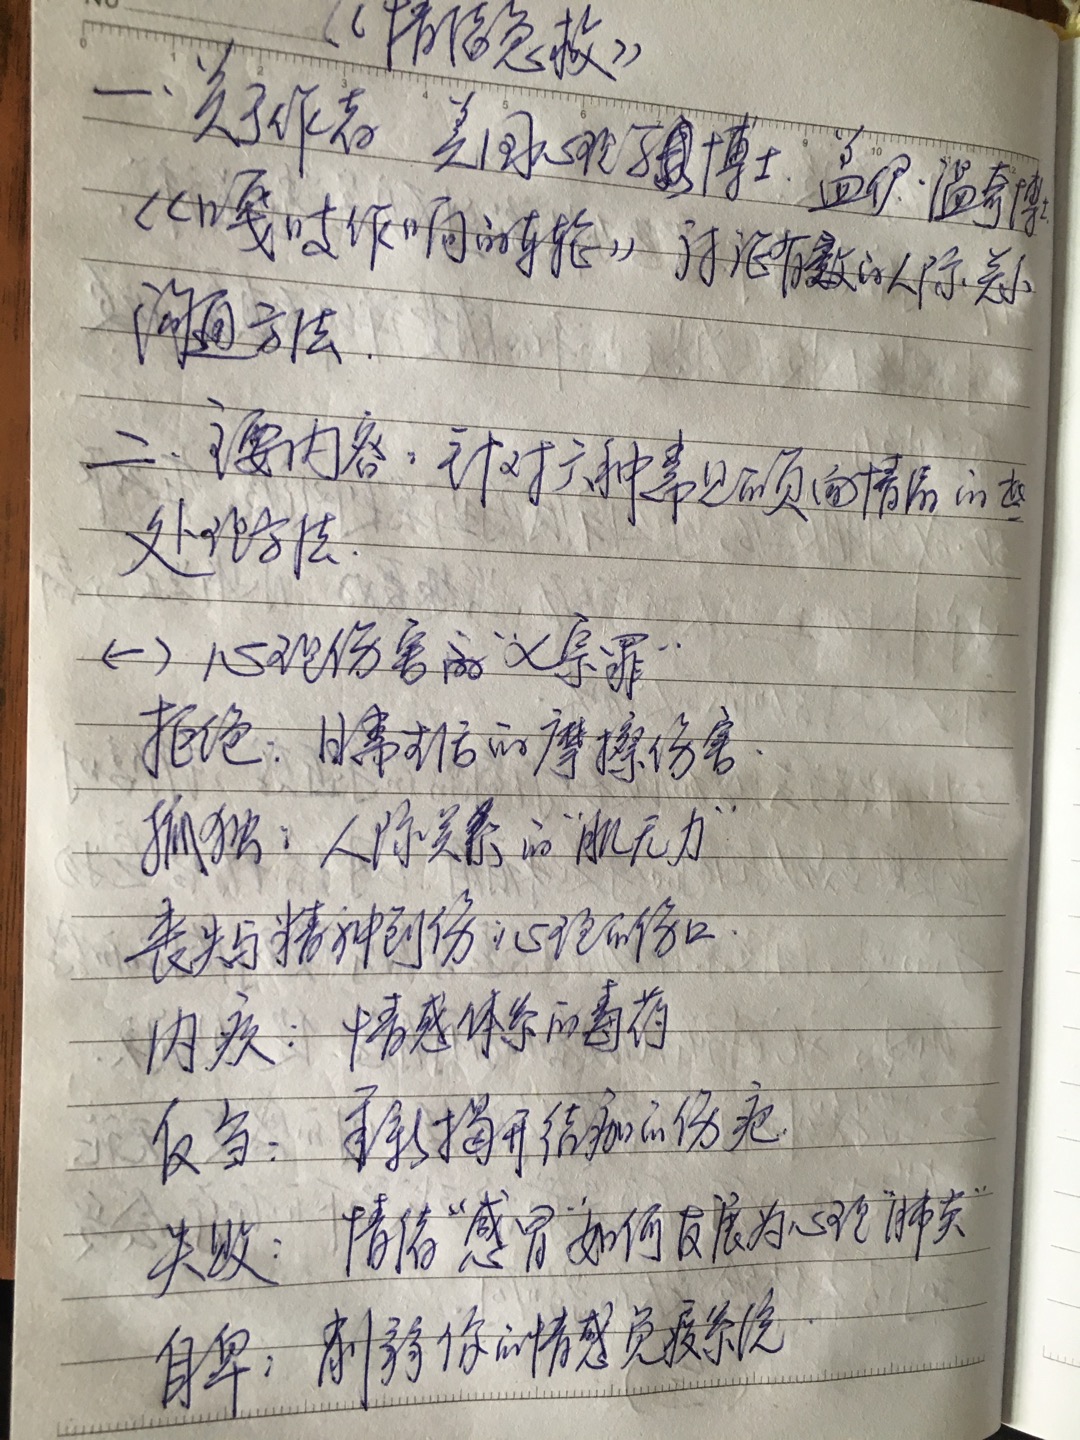 No
《情绪急救》
一.关于作者 美国心理学博士.盖伊·温奇博士.
《嘎吱作响的车轮》讨论有效的人际关系
沟通方法.
二.主要内容:针对六种常见的负面情绪的
处理方法.
(一)心理伤害的"父亲罪"
拒绝:日常生活的摩擦伤害.
孤独:人际关系的"肌无力"
丧失与精神创伤:心理的伤口.
内疚:情感体系的毒药
反刍:重新揭开结痂的伤疤.
失败:情绪"感冒"如何发展为心理"肺炎"
自卑:削弱你的情感免疫系统.